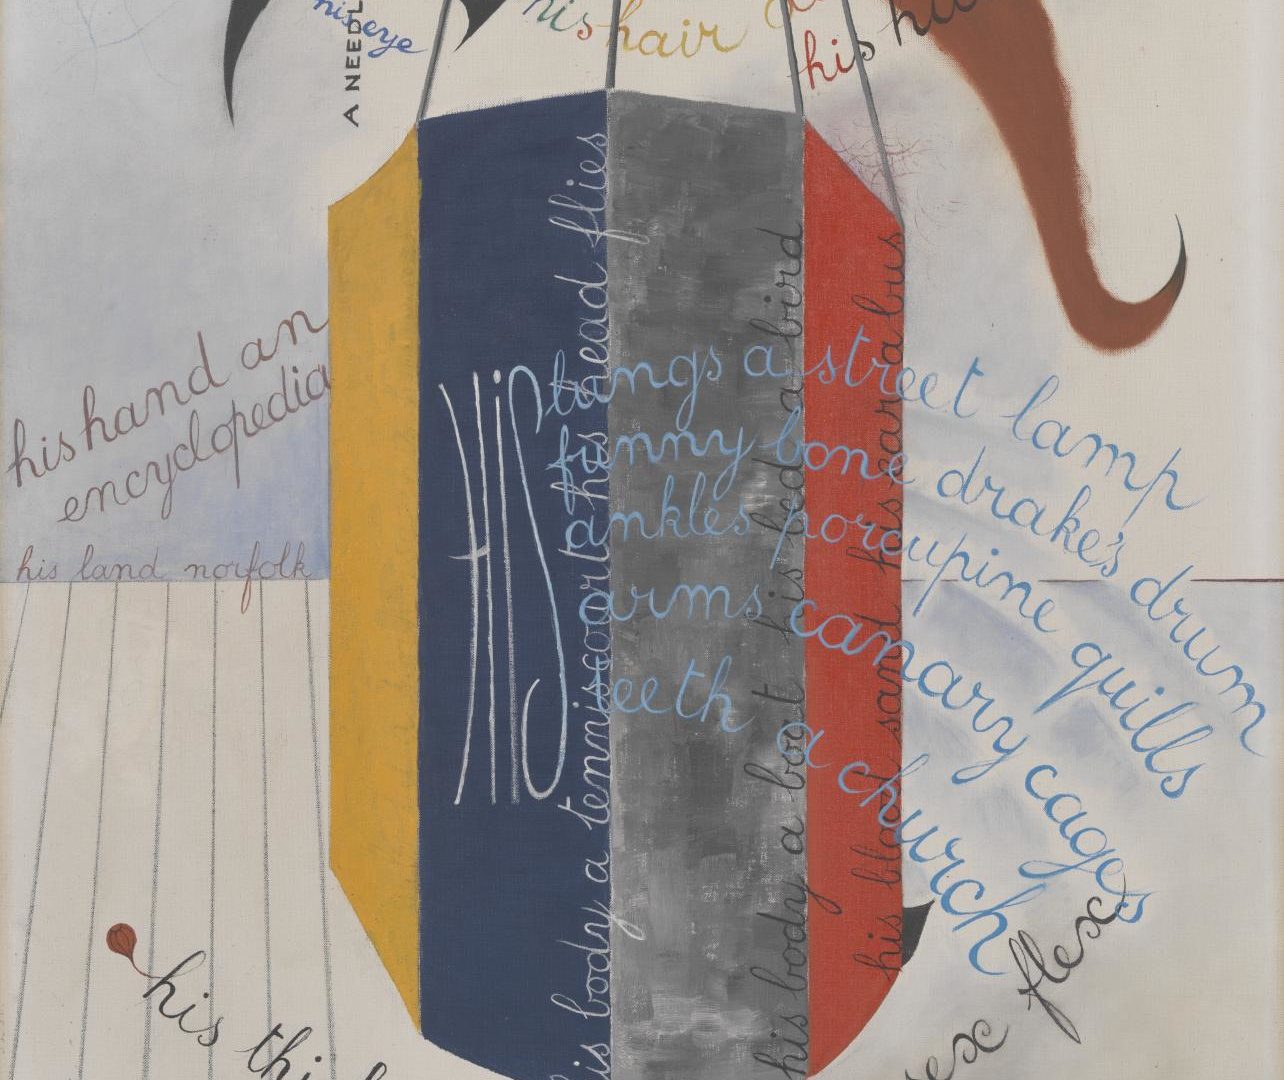 his eye
A NEEDL
his hair
his
his hand an
encyclopedia
his land norfolk
HIS
lungs a street lamp
funny bone drake's drum
ankles porcupine quills
arms canary cages
teeth a church
his body a tennis court his head flies
his body a boat his bed a bird
his blood sand his ear a bus
his
flex